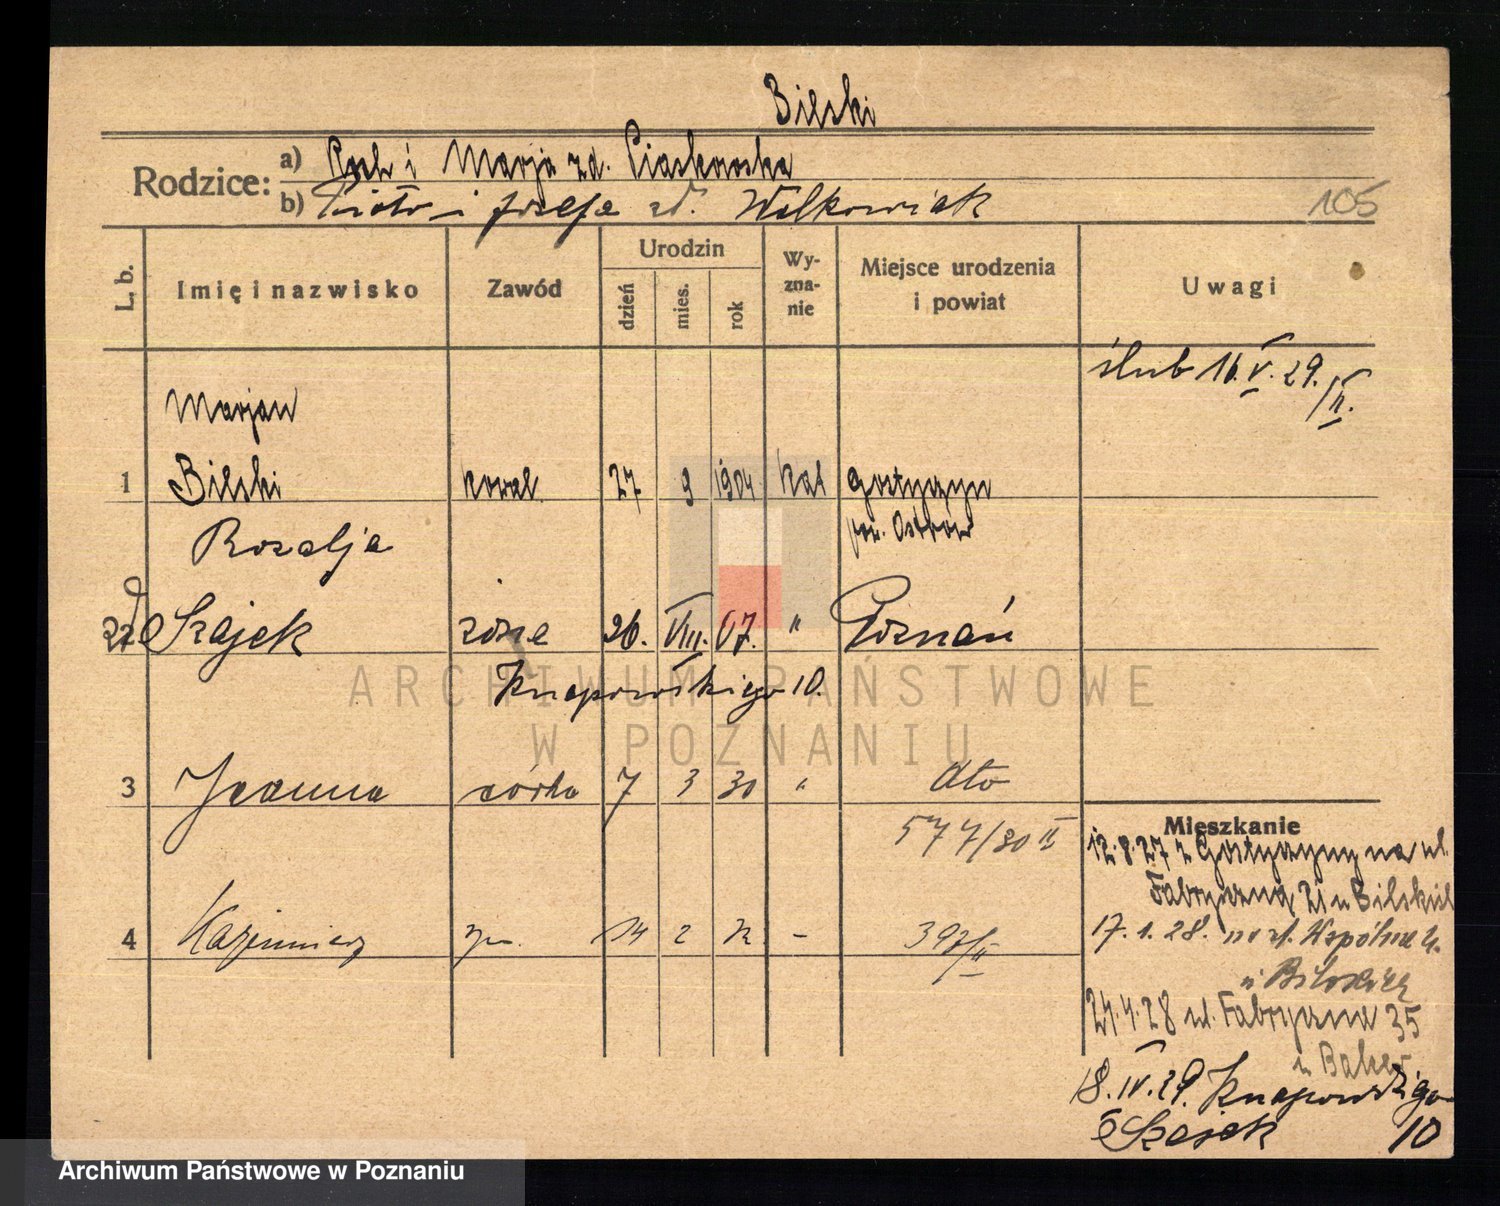 Bilski
Rodzice:
a) Roch i Marja zd. Piaskowska
b) Piotr i Józefa zd. Walkowiak
105
L. b.
Imię i nazwisko
Zawód
Urodzin
dzień
mies.
rok
Wy-
zna-
nie
Miejsce urodzenia
i powiat
Uwagi
ślub 16.V.29./II.
Marjan
1 Bilski kowal 27 9 1904 kat Gostyczyn
pow. Ostrów
Rozalja
Szajek żona 26. VIII. 07. " Poznań
Knapowskiego 10.
3 Joanna córka 7 3 30 " dto
577/30 II
4 Kazimierz 14 2 –
397/II
Mieszkanie
12.8.27 z Gostyczyny na ul.
Fabryczną 21 u Bilskich
17.1.28. na ul. Wspólna
u
24.4.28 ul. Fabryczna 35
u
18.IV.29. Knapowskiego
Szajek 10
ARCHIWUM PAŃSTWOWE
W POZNANIU
Archiwum Państwowe w Poznaniu